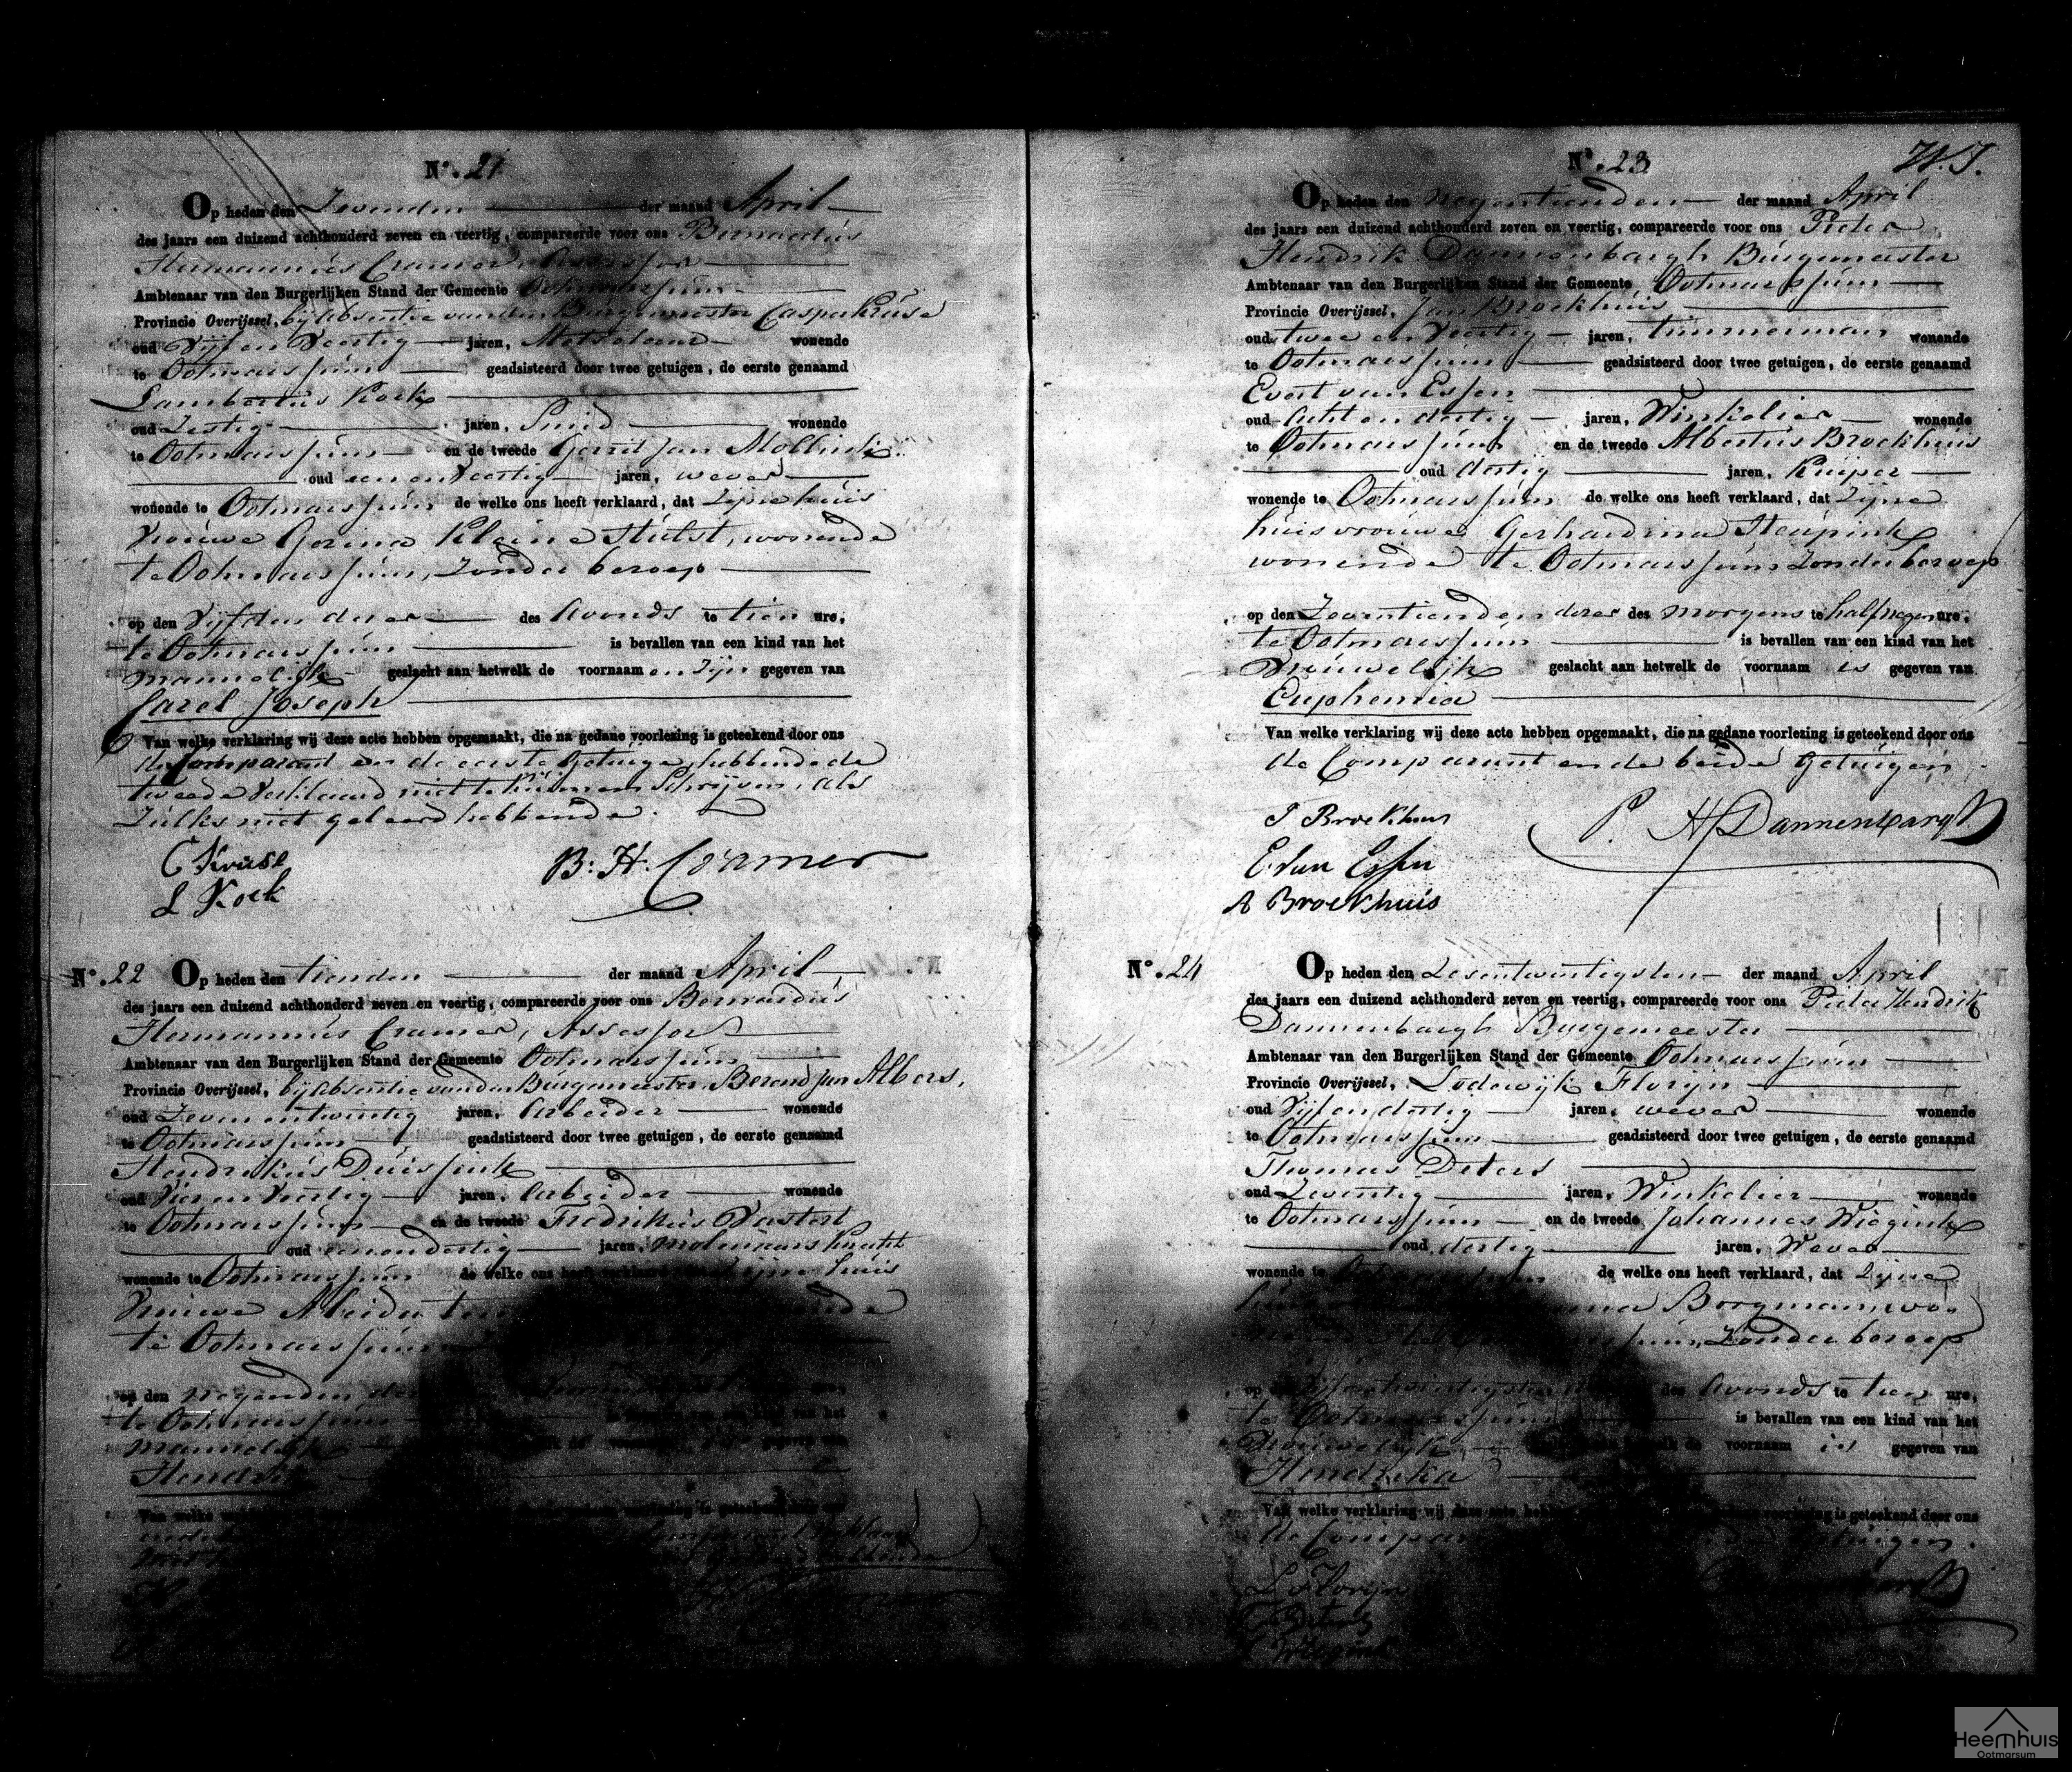 N°. 21
Op heden den Zevenden der maand April
des jaars een duizend achthonderd zeven en veertig, compareerde voor ons Bernardus
Hermannus Cramer, Assessor
Ambtenaar van den Burgerlijken Stand der Gemeente Ootmarssum
Provincie Overijssel, bij absentie van den Burgemeester Casper Kruse
oud Vijf en Veertig jaren, Metselaar wonende
te Ootmarssum geadsisteerd door twee getuigen, de eerste genaamd
Lambertus Kock
oud Zestig jaren, Smid wonende
te Ootmarssum en de tweede Gerrit Jan Mollink
oud een en Veertig jaren, wever
wonende te Ootmarssum de welke ons heeft verklaard, dat zijne huis
vrouwe Gerina Kleine Stulst, wonende
te Ootmarssum, zonder beroep
op den Vijfden dezer des Avonds te tien ure,
te Ootmarssum is bevallen van een kind van het
mannelijk geslacht aan hetwelk de voornaam en zijn gegeven van
Carel Joseph
Van welke verklaring wij deze acte hebben opgemaakt, die na gedane voorlezing is geteekend door ons
de Comparant en de eerste Getuige, hebbende de
tweede Verklaard niet te kunnen Schrijven, als
Zulks niet geleerd hebbende.
C Kruse
B: H. Cramer
L Kock
N°. 22 Op heden den tienden der maand April
des jaars een duizend achthonderd zeven en veertig, compareerde voor ons Bernardus
Hermannus Cramer, Assessor
Ambtenaar van den Burgerlijken Stand der Gemeente Ootmarssum
Provincie Overijssel, bij absentie van den Burgemeester, Berend Jan Albers,
oud Zeven en twintig jaren, Arbeider wonende
te Ootmarssum geadsisteerd door twee getuigen, de eerste genaamd
Hendrikus Duissink
oud Vier en Veertig jaren, Arbeider wonende
te Ootmarssum en de tweede Fredrikus Vastert
oud een en dertig jaren, molenaars knecht
wonende te Ootmarssum de welke ons heeft zijne huis
vrouwe Aleida
te Ootmarssum
op den negenden
te Ootmarssum van het
mannelijk
Hendrik
Van welke
N°. 23 W.J.
Op heden den negentienden der maand April
des jaars een duizend achthonderd zeven en veertig, compareerde voor ons Pieter
Hendrik Dannenbargh Burgemeester
Ambtenaar van den Burgerlijken Stand der Gemeente Ootmarssum
Provincie Overijssel, Jan Broekhuis
oud twee en Veertig jaren, timmerman wonende
te Ootmarssum geadsisteerd door twee getuigen, de eerste genaamd
Evert van Essen
oud Acht en dertig jaren, Winkelier wonende
te Ootmarssum en de tweede Albertus Broekhuis
oud dertig jaren, Kuiper
wonende te Ootmarssum de welke ons heeft verklaard, dat zijne
huisvrouwe Gerhardina Steupink
wonende te Ootmarssum, zonder beroep
op den Zeventienden dezer des morgens te half negen ure,
te Ootmarssum is bevallen van een kind van het
Vrouwelijk geslacht aan hetwelk de voornaam is gegeven van
Euphemia
Van welke verklaring wij deze acte hebben opgemaakt, die na gedane voorlezing is geteekend door ons
de Comparant en de beide Getuigen
J Broekhuis
P. H Dannenbargh
E van Essen
A Broekhuis
N°. 24 Op heden den Zesentwintigsten der maand April
des jaars een duizend achthonderd zeven en veertig, compareerde voor ons Pieter Hendrik
Dannenbargh Burgemeester
Ambtenaar van den Burgerlijken Stand der Gemeente Ootmarssum
Provincie Overijssel, Lodewijk Floryn
oud Vijf en dertig jaren, wever wonende
te Ootmarssum geadsisteerd door twee getuigen, de eerste genaamd
Thomas Deters
oud Zeventig jaren, Winkelier wonende
te Ootmarssum en de tweede Johannes Wiegink
oud dertig jaren, Wever
wonende te de welke ons heeft verklaard, dat zijne
Borgman, wo-
zonder beroep
op den Vijfentwintigsten des Avonds te tien ure,
te Ootmarssum is bevallen van een kind van het
Vrouwelijk voornaam is gegeven van
Hendrika
Van welke verklaring wij deze acte voorlezing is geteekend door ons
de Getuigen.
L Floryn
Heemhuis
Ootmarsum